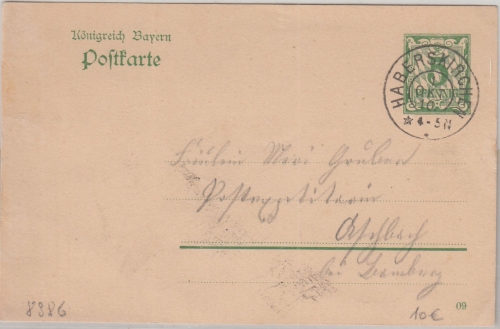 Königreich Bayern
Postkarte
5
PFENNIG
HABERSKIRCHEN
10
4-5N
Fräulein Mari Gruber
Postexpeditorin
Aschbach
bei Bamberg
09
8986
10€